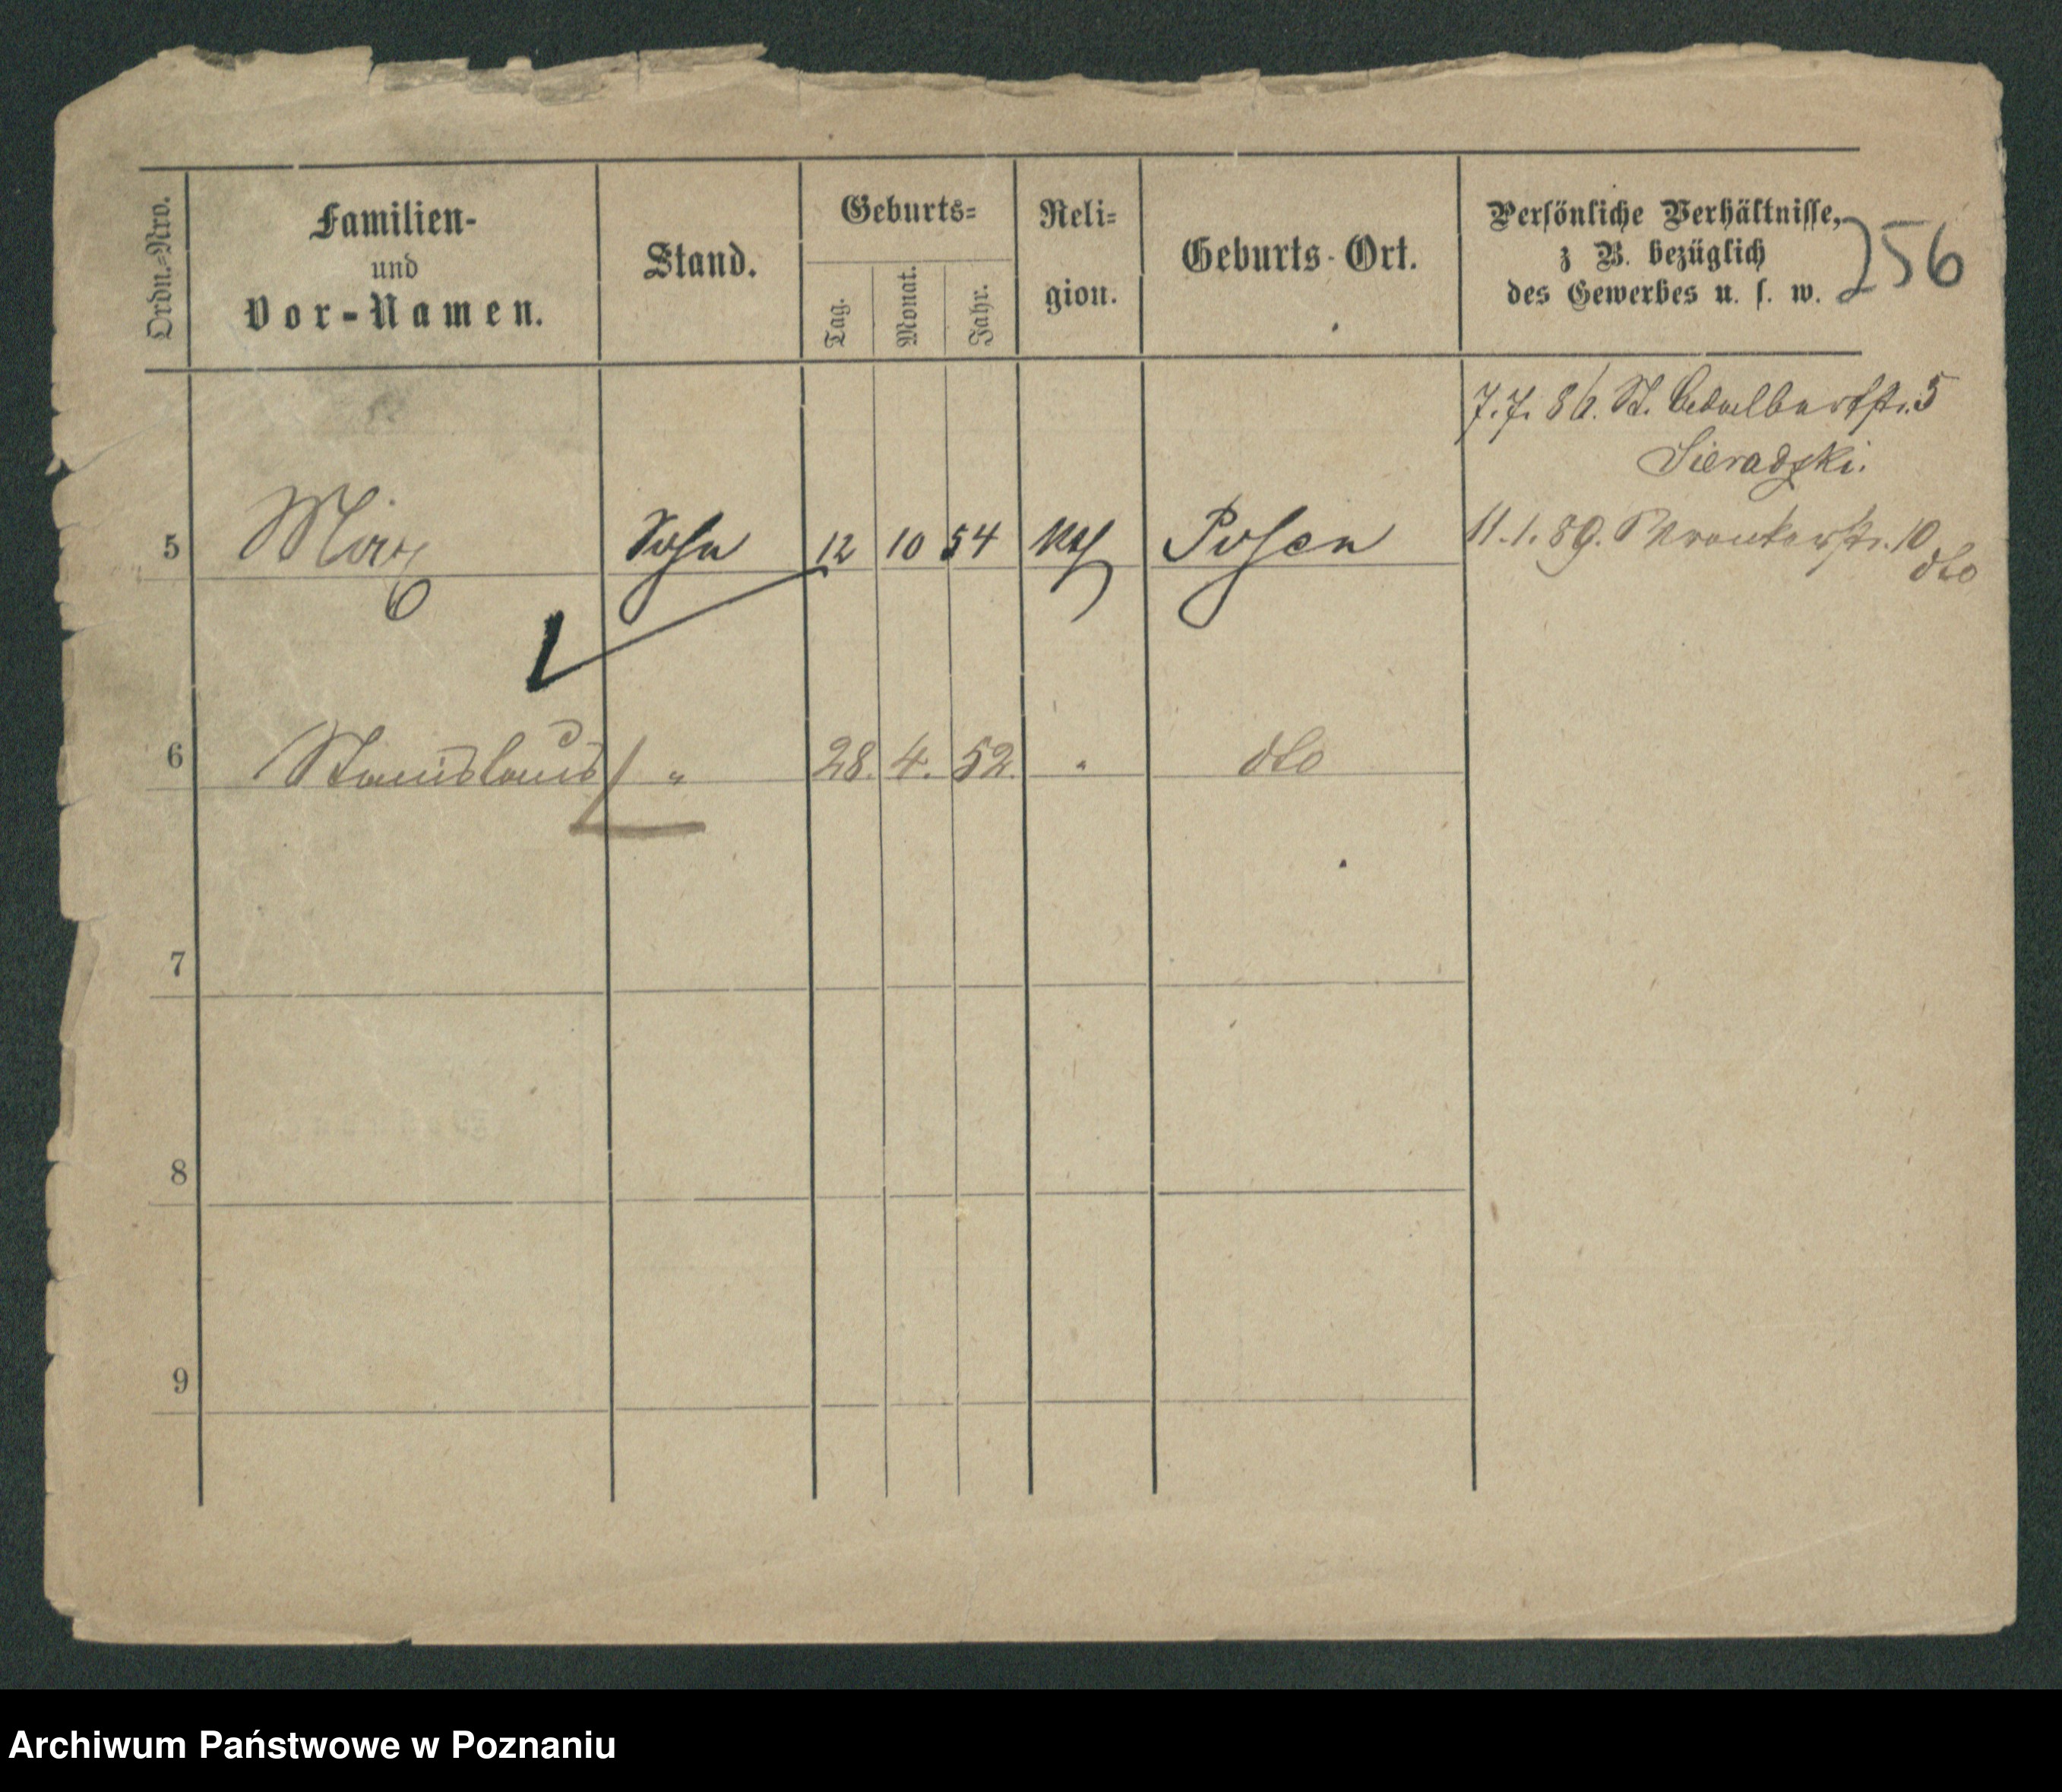 Ordn.=Nro.
Familien-
und
Vor-Namen.
Stand.
Geburts=
Tag.
Monat.
Jahr.
Reli=
gion.
Geburts-Ort.
Persönliche Verhältnisse,
z B. bezüglich
des Gewerbes u. s. w.
256
7.7.86. St. Adalbertstr. 5
Sieradzki.
5 Sohn 12 10 54 kth Posen
11.1.89. Wronkerstr. 10
dto
6 Stanislaus " 28. 4. 52. " dto
7
8
9
Archiwum Państwowe w Poznaniu